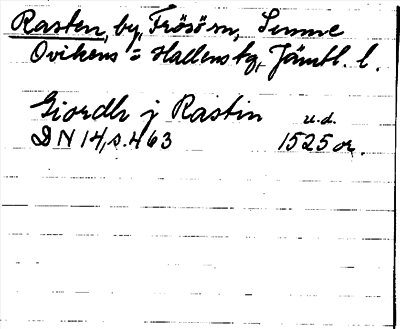 Rasten, by, Frösö sn, Sunne
Ovikens o Hallens tg, Jämtl. l.
Giordh j Rastin u.d.
DN 14, s. 463 1525 or.